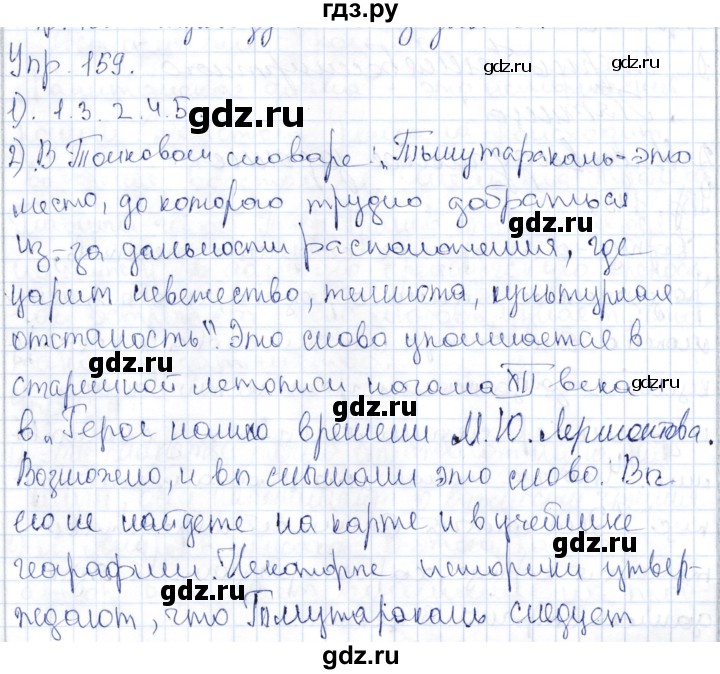 гдз.ру
Упр. 159.
1). 1.3. 2.4.5
2). В Толковом словаре: „Тьмутаракань - это
место, до которого трудно добраться
из-за дальности расположения, где
царит невежество, темнота, культурная
отсталость". Это слово упоминается в
старинной летописи начала XII века и
в „Герое нашего времени М.Ю. Лермонтова.
Возможно, и вы слышали это слово. Вы
его не найдете на карте и в учебнике
географии. Некоторые историки утвер-
ждают, что Тьмутаракань следует
gdz.ru
gdz.ru
gdz.ru
gdz.ru
gdz.ru
gdz.ru
gdz.ru
gdz.ru
gdz.ru
gdz.ru
gdz.ru
gdz.ru
gdz.ru